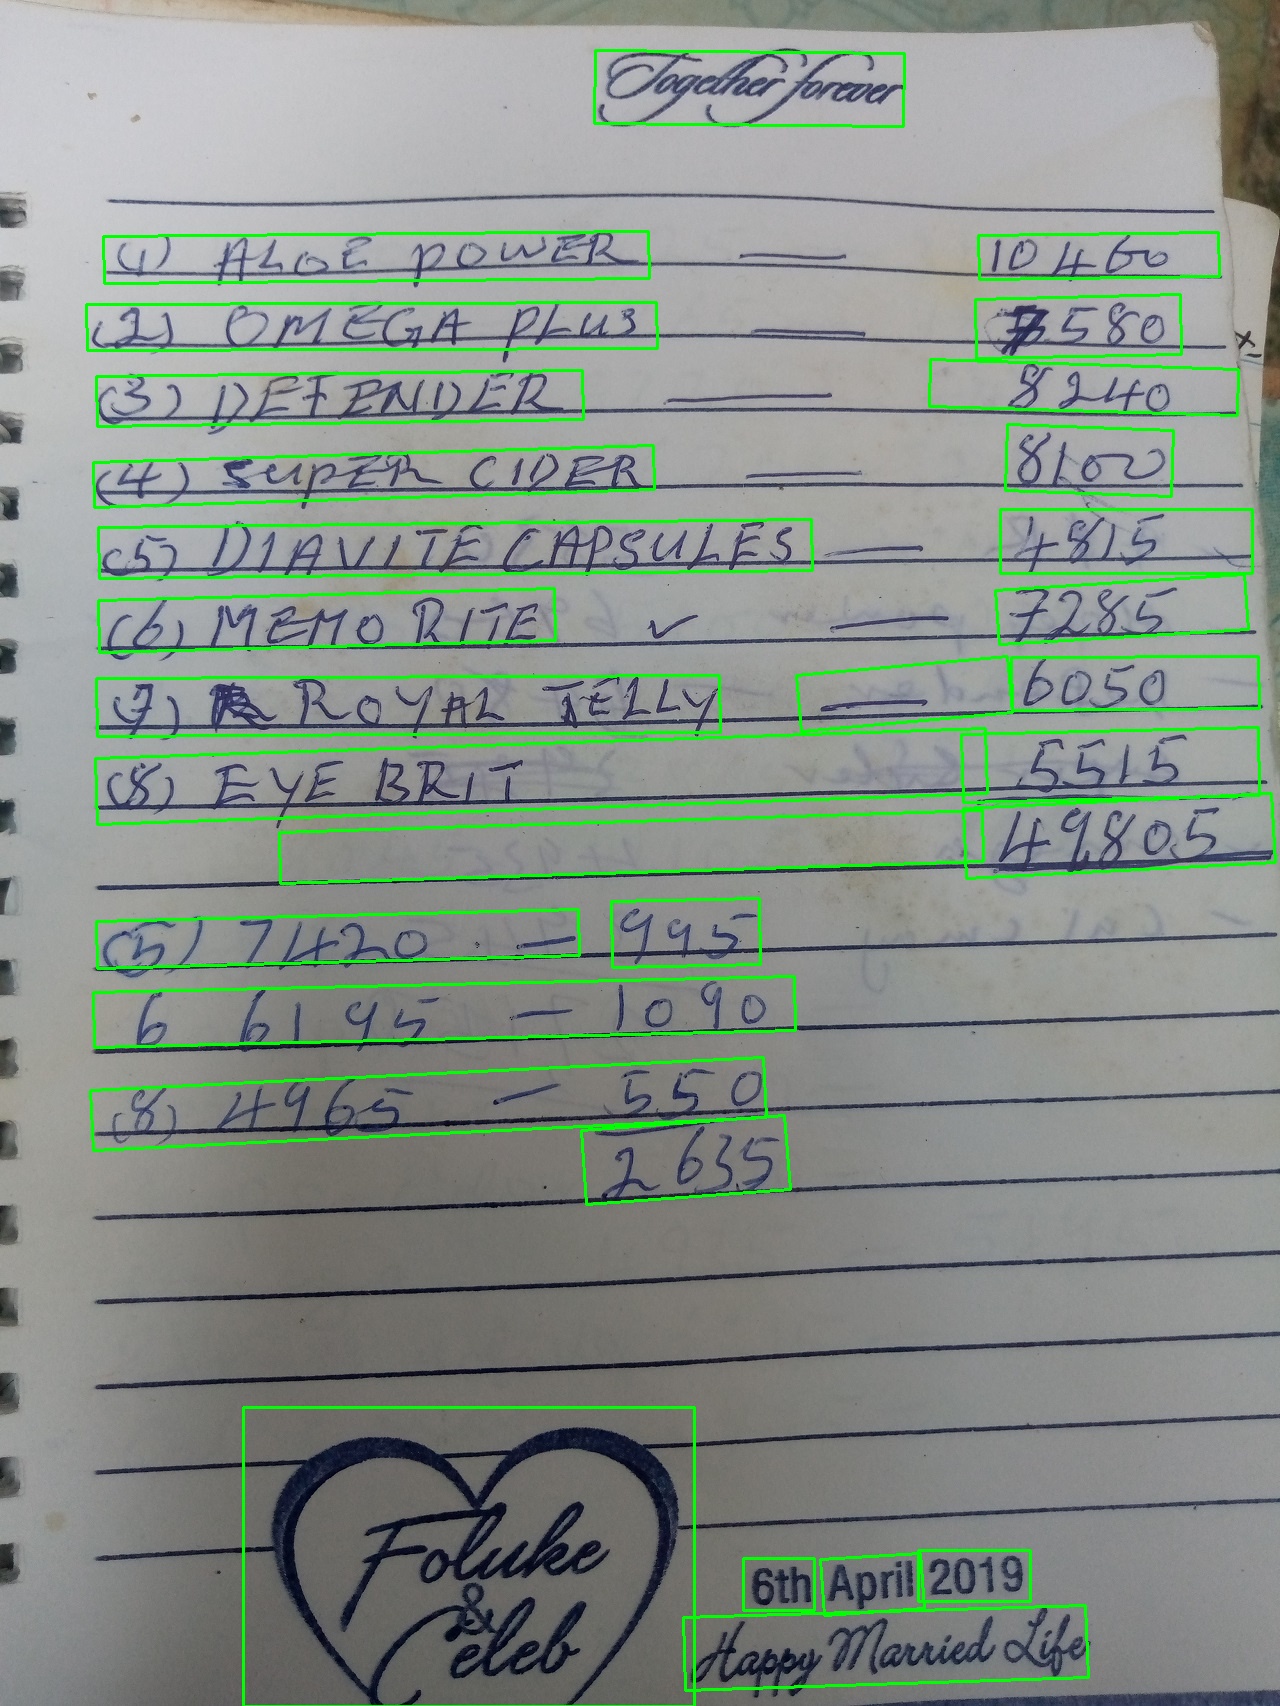 Together forever
(1) ALOE POWER — 10460
(2) OMEGA PLUS — 7580
(3) DEFENDER — 8240
(4) SUPER CIDER — 8100
(5) DIAVITE CAPSULES — 4815
(6) MEMO RITE ✓ — 7285
(7) ROYAL JELLY — 6050
(8) EYE BRIT 5515
49805
(5) 7420 — 995
6 6195 — 1090
(8) 4965 — 550
2635
Foluke
&
Celeb
6th April 2019
Happy Married Life